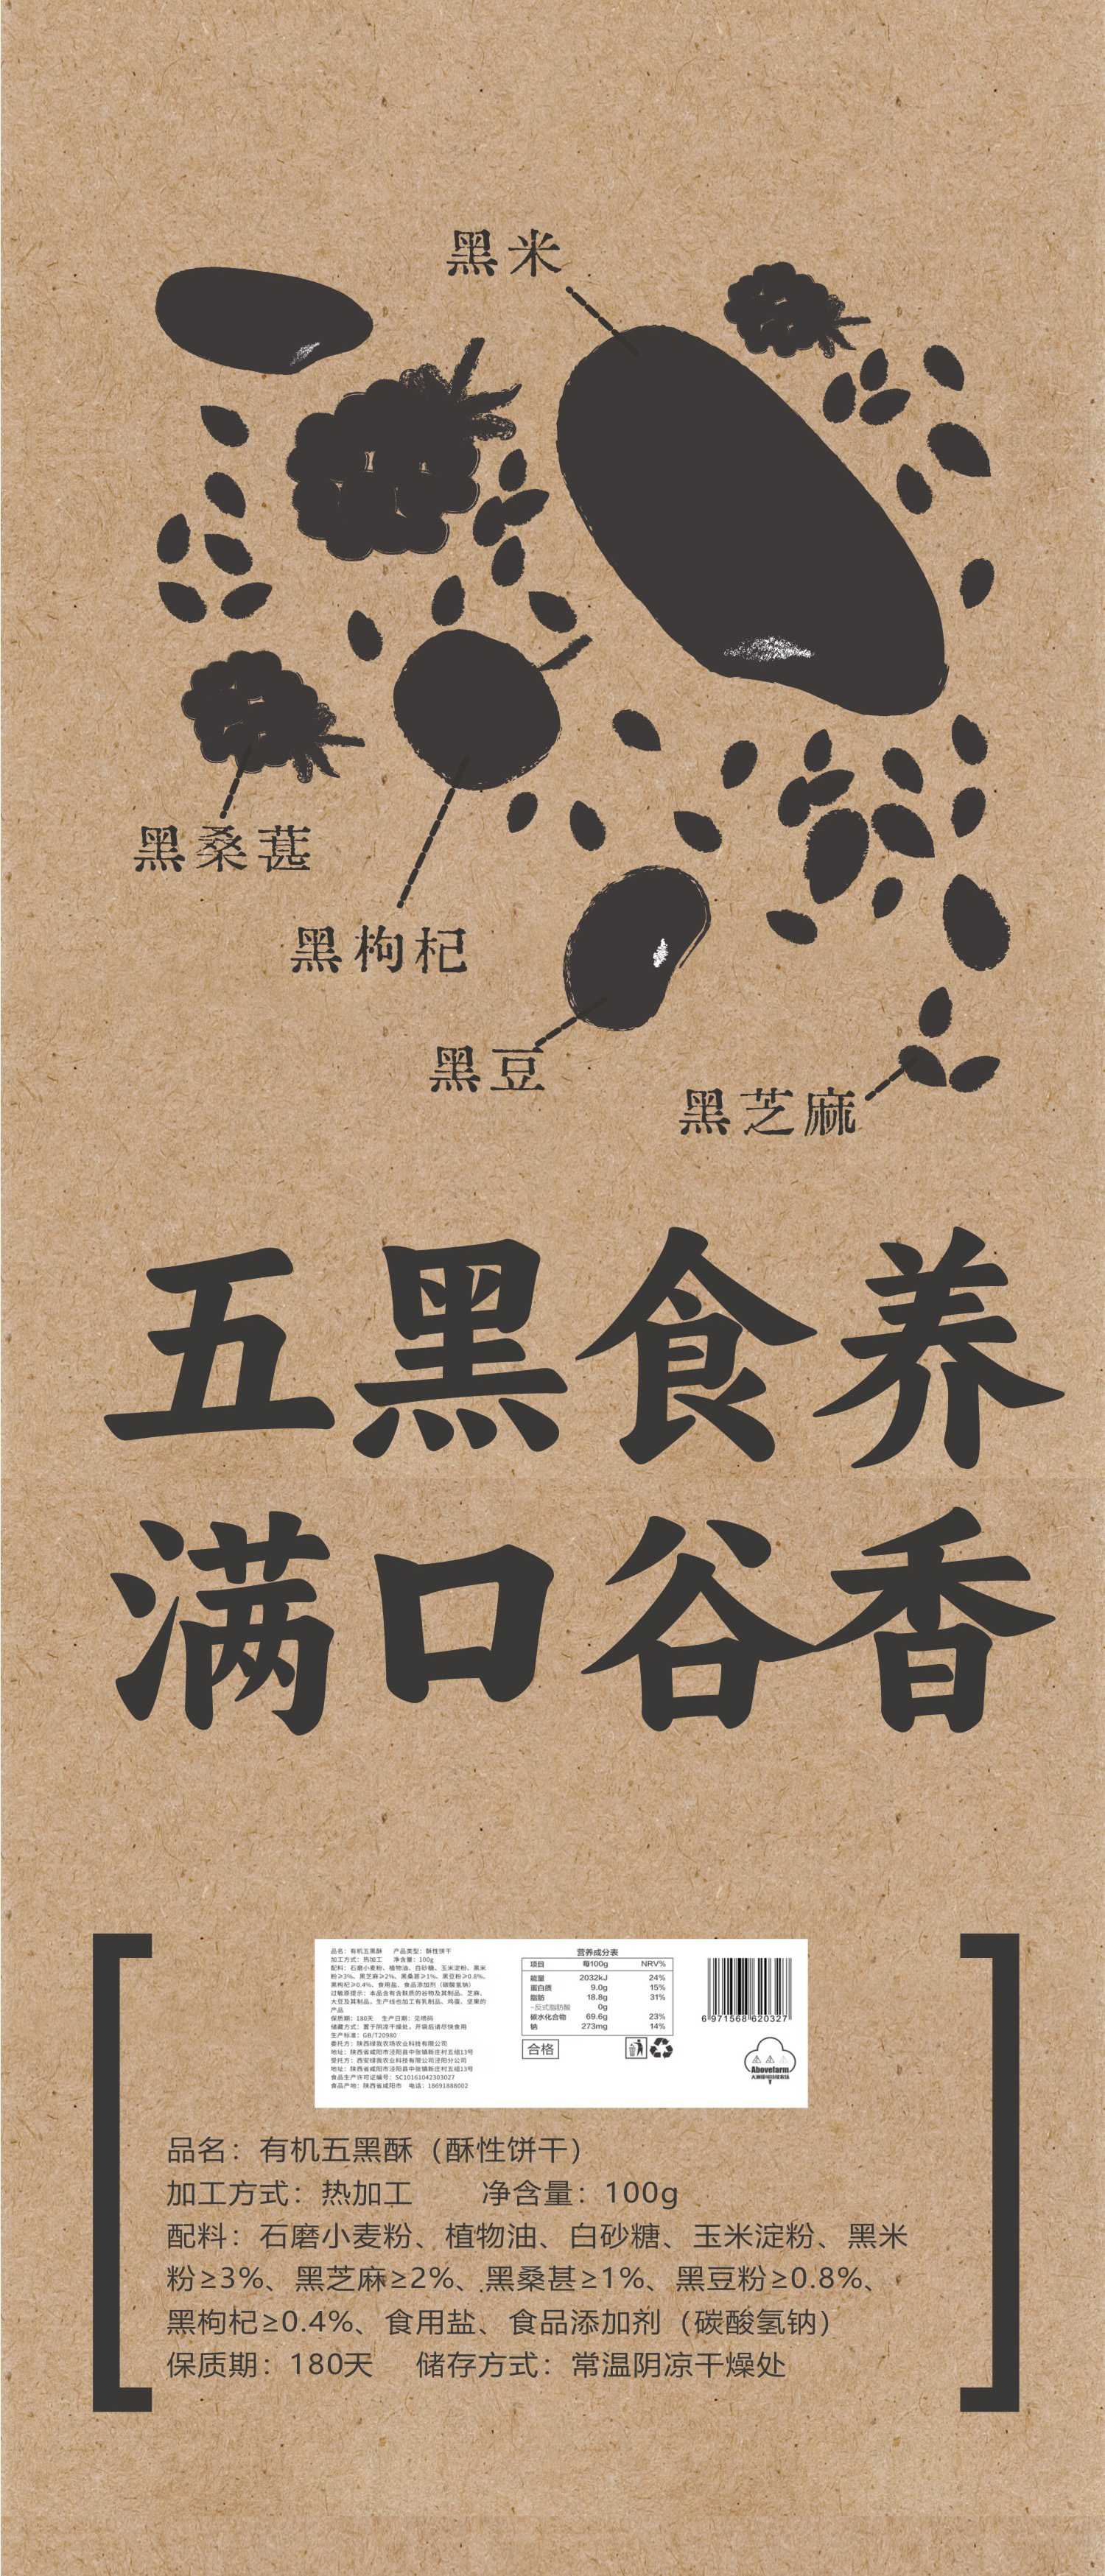 黑米
黑桑葚
黑枸杞
黑豆
黑芝麻
五黑食养
满口谷香
品名：有机五黑酥 产品类型：酥性饼干
加工方式：热加工 净含量：100g
配料：石磨小麦粉、植物油、白砂糖、玉米淀粉、黑米
粉≥3%、黑芝麻≥2%、黑桑葚≥1%、黑豆粉≥0.8%、
黑枸杞≥0.4%、食用盐、食品添加剂（碳酸氢钠）
过敏原提示：本品含有含麸质的谷物及其制品、芝麻、
大豆及其制品，生产线也加工有乳制品、鸡蛋、坚果的
产品
保质期：180天 生产日期：见喷码
储藏方式：置于阴凉干燥处，开袋后请尽快食用
生产标准：GB/T20980
委托方：陕西绿我农场农业科技有限公司
地址：陕西省咸阳市泾阳县中张镇新庄村五组13号
受托方：西安绿我农业科技有限公司泾阳分公司
地址：陕西省咸阳市泾阳县中张镇新庄村五组13号
食品生产许可证编号：SC10161042303027
食品产地：陕西省咸阳市 电话：18691888002
营养成分表
项目 每100g NRV%
能量 2032kJ 24%
蛋白质 9.0g 15%
脂肪 18.8g 31%
-反式脂肪酸 0g
碳水化合物 69.6g 23%
钠 273mg 14%
合格
6 971568 620327
Abovefarm
品名：有机五黑酥（酥性饼干）
加工方式：热加工 净含量：100g
配料：石磨小麦粉、植物油、白砂糖、玉米淀粉、黑米
粉≥3%、黑芝麻≥2%、黑桑葚≥1%、黑豆粉≥0.8%、
黑枸杞≥0.4%、食用盐、食品添加剂（碳酸氢钠）
保质期：180天 储存方式：常温阴凉干燥处